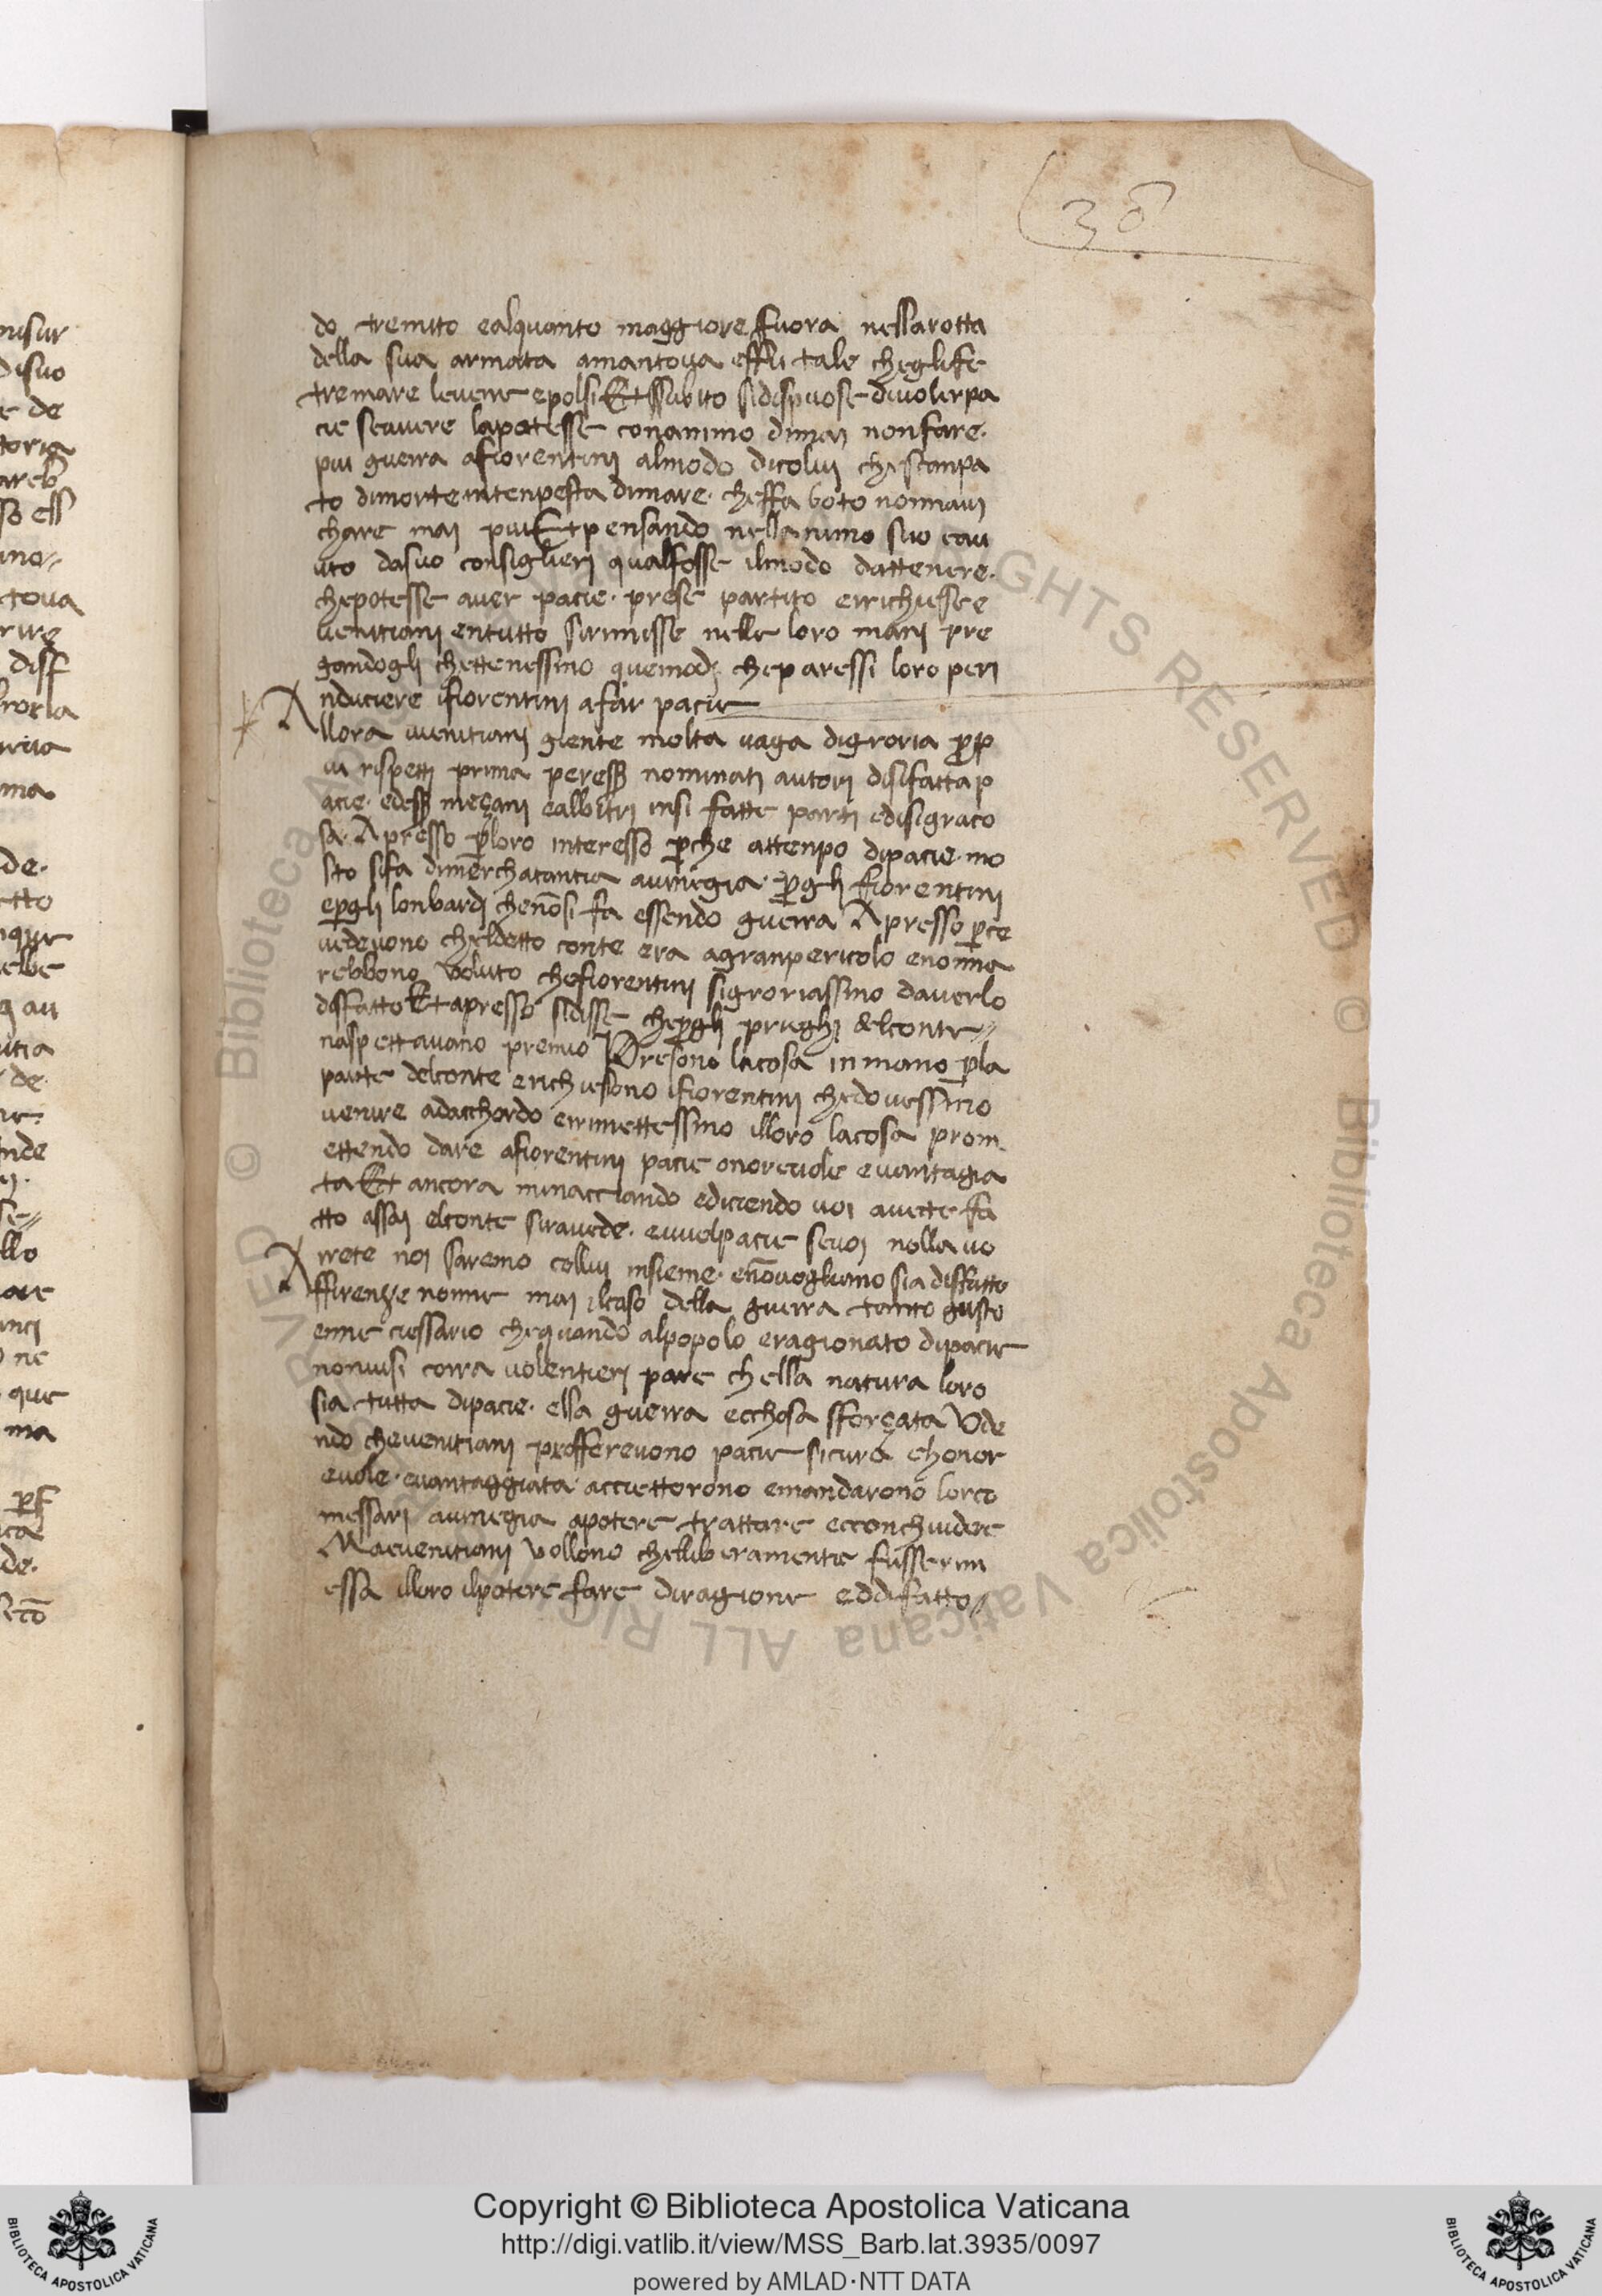 38
do tremito ealquanto maggiore fuora nellarotta
della sua armata amantova effu tale chegli fe
tremare levene epolsi Et ssubito sidispuose divolerpa
cie seavere lapotesse conanimo dimai nonfare.
piu guerra afiorentini almodo dicolui che scanpa
to dimorte intenpesta dimare. cheffa boto nonnavi
chare mai piu Et pensando nellanimo suo eau
uto dasuo consiglieri qualfosse ilmodo dattenere.
chepotesse aver pacie. prese partito errichiesse e
venitiani entutto sirimisse nelle loro mani pre
gandogli chettenessino quemodi cheparessi loro peri
nduciere ifiorentini afar pacie
Allora vienitiani giente molta vaga digroria p̲ p
iu rispetti prima peresser nominati autori disifatta p
acie. edesser meçani ealbitri insi fatte parti edisigraco
sa. Apresso p̲loro interesso p̲che attenpo dipacie. mo
sto sifa dimerchatantia avinegia. p̲gli fiorentini
ep̲gli lonbardi chenōsi fa essendo guerra Apresso p̲ce
vedevono cheldetto conte era agranpericolo enonna
rebbono voluto chefiorentini sigroriassino daverlo
disfatto Et apresso sidisse chep̲gli prieghi delconte
naspettavano premio Presono lacosa inmano p̲la
parte delconte erichiesono ifiorentini chedovessino
venire adacchordo errimettessino illoro lacosa prom
ettendo dare afiorentini pacie onorevole evantagia
ta Et ancora minacciando ediciendo voi avette fa
tto assai elconte siravede. evvolpacie sevoi nollavo
rrete noi saremo collui insieme. enōvogliamo sia disfatto
Affirenze nonne mai ilcaso della guerra tanto giusto
enne ciessario chequando alpopolo eragionato dipacie
nonvisi corra volentieri pare chella natura loro
sia tutta dipacie. ella guerra ecchosa sforçata Vde
ndo chevenitiani profferevono pacie sicura ehonor
evole. evantaggiata acciettorono emandarono lorco
messari avinegia apotere trattare econchiudere
Maevenitiani vollono chelliberamente fusse rim
essa illoro ilpotere fare diragione eddifatto
Copyright © Biblioteca Apostolica Vaticana
http://digi.vatlib.it/view/MSS_Barb.lat.3935/0097
powered by AMLAD·NTT DATA